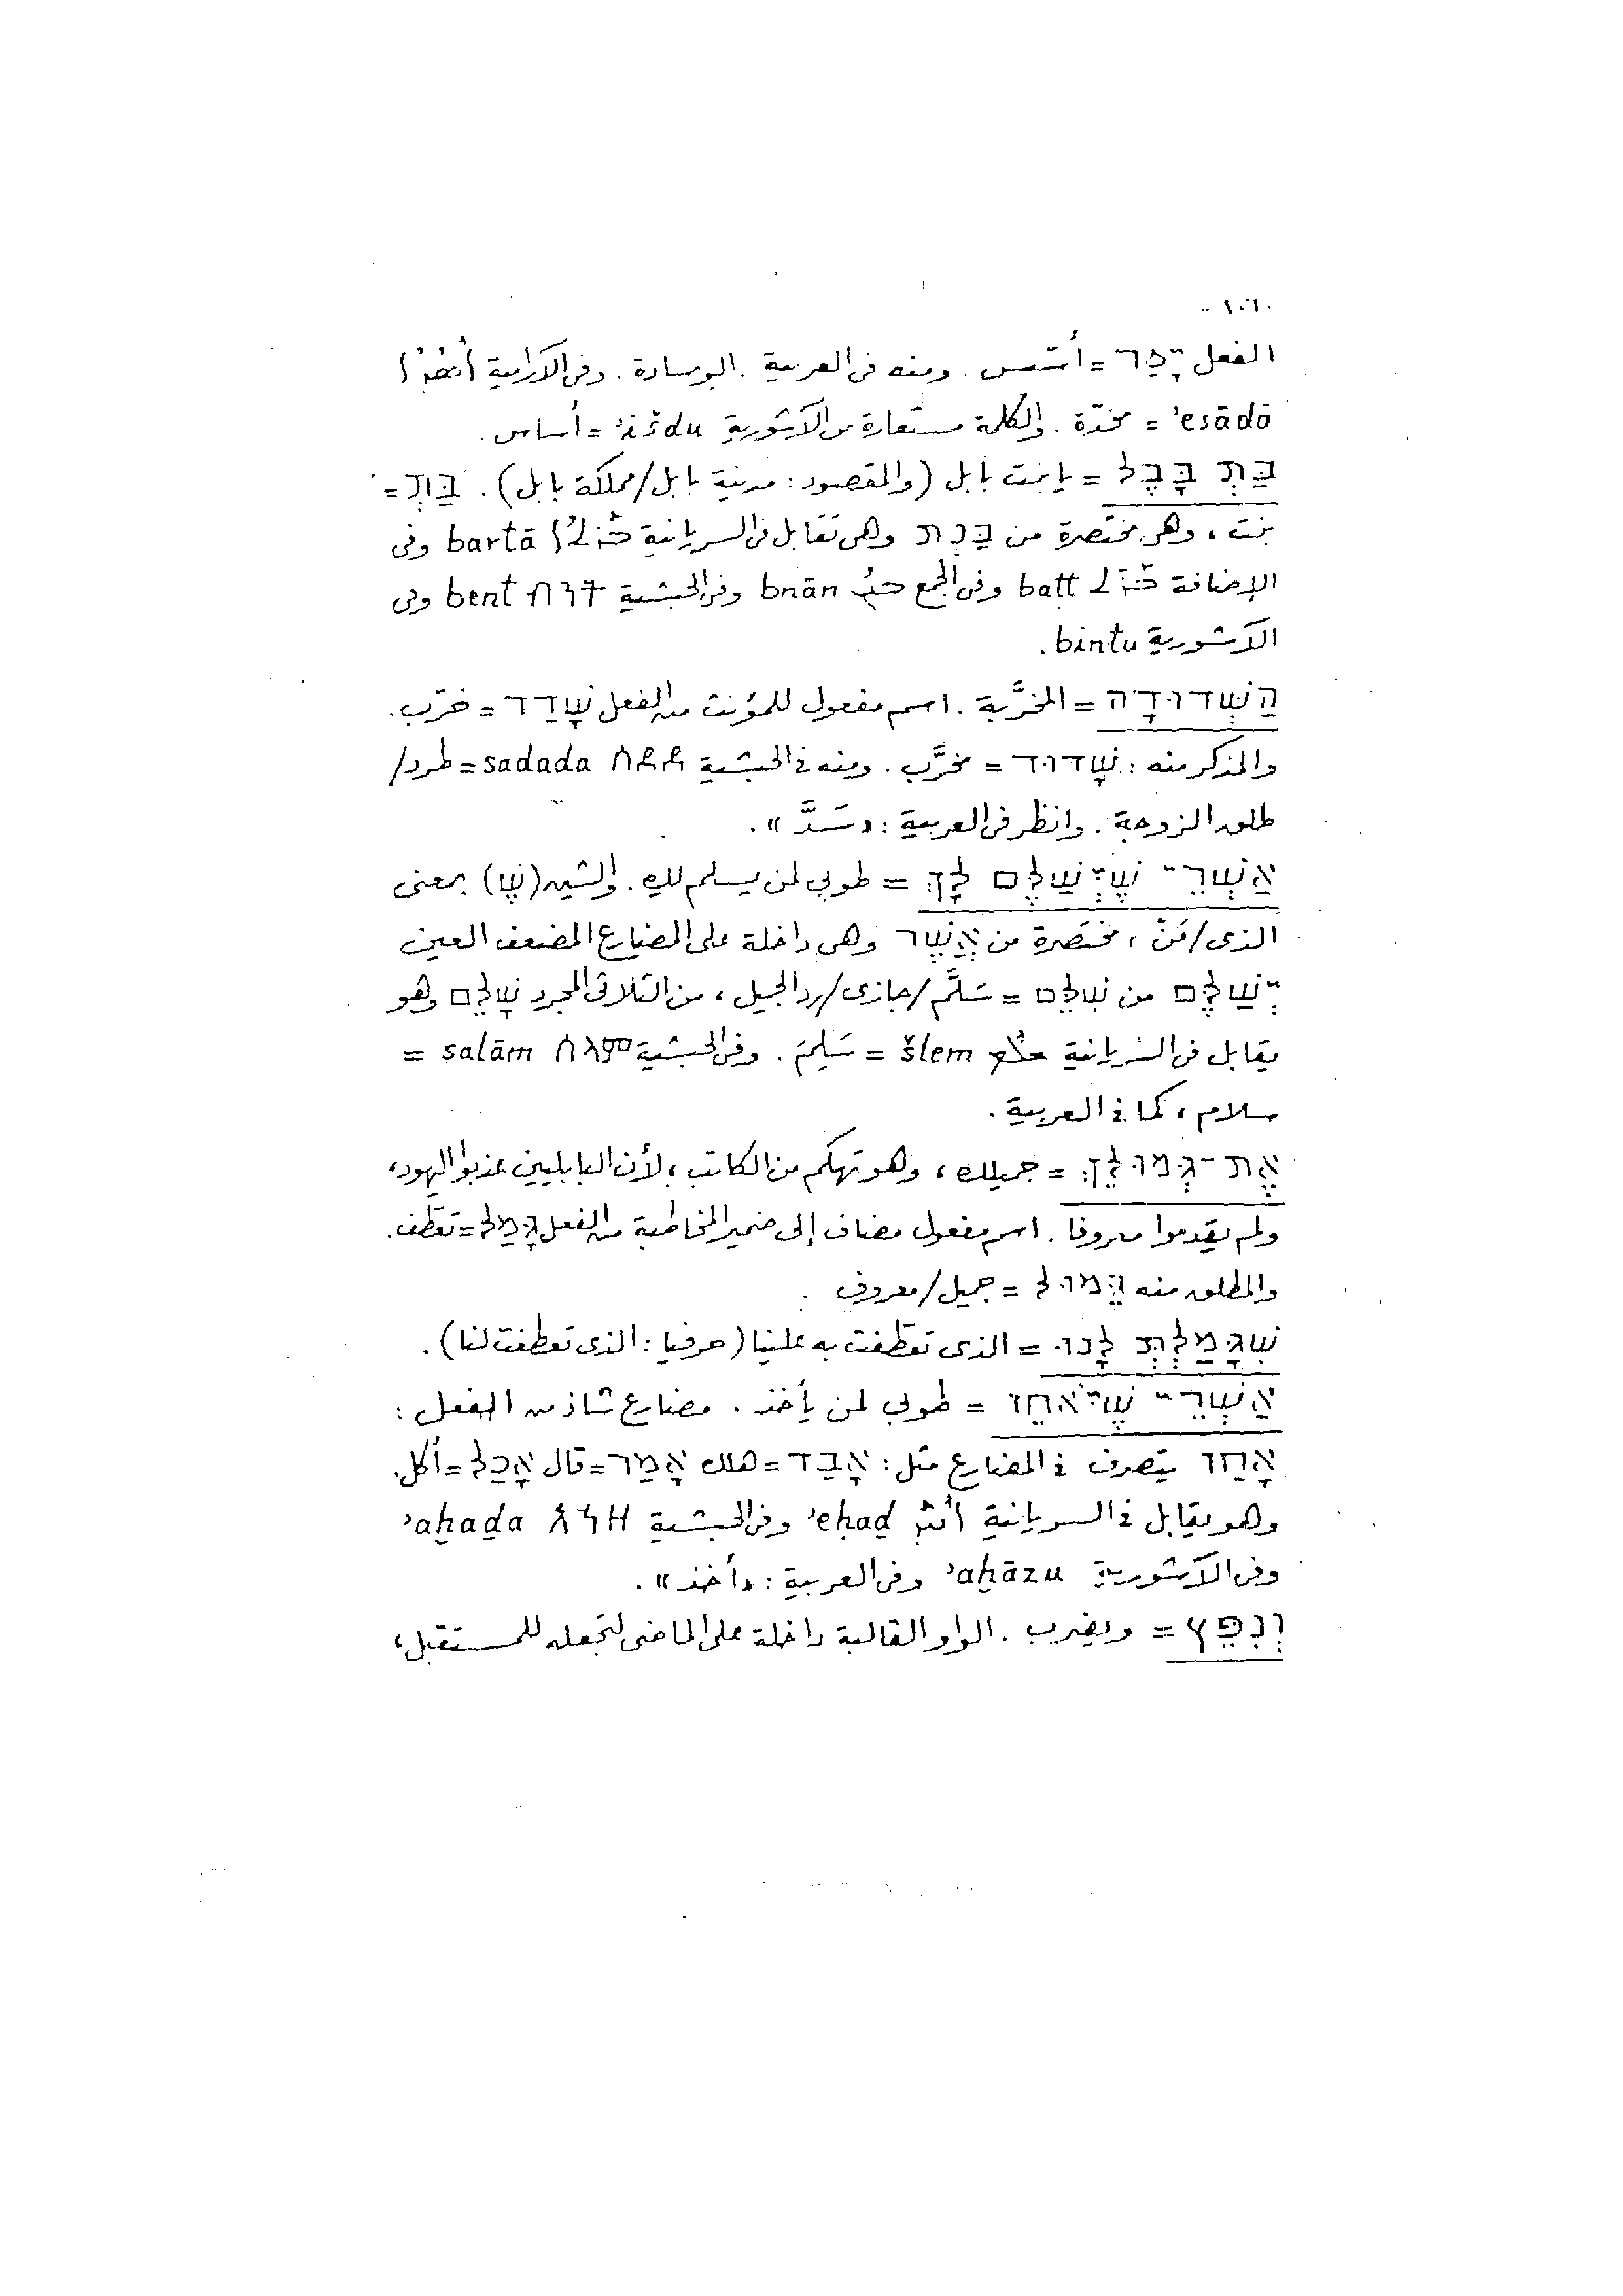 الفعل יָסַד = أسّس. ومنه فى العربية. الوسادة. وفى الآرامية
ʾesādā = مخدّة. والكلمة مستعارة من الآشورية ʾišdu = أساس.
בַּת בָּבֶל = يا بنت بابل (والمقصود: مدينة بابل/مملكة بابل). בַּת =
بنت، وهى مختصرة من בַּנְת وهى تقابل فى السريانية ܒܪܬܐ bartā وفى
الإضافة ܒܪܬ batt وفى الجمع ܒܢܢ bnān وفى الحبشية ብንት bent وفى
الآشورية bintu.
הַשְּׁדוּדָה = المخرَّبة. اسم مفعول للمؤنث من الفعل שָׁדַד = خرّب.
والمذكر منه: שָׁדוּד = مخرَّب. ومنه فى الحبشية ሰደደ sadada = طرد/
طلق الزوجة. وانظر فى العربية: «سَدَّ».
אַשְׁרֵי שֶׁיְּשַׁלֶּם לָךְ = طوبى لمن يسلم لكِ. والشين (שֶׁ) بمعنى
الذى/مَنْ، مختصرة من אֲשֶׁר وهى داخلة على المضارع المضعف العين
יְשַׁלֶּם من שִׁלֵּם = سَلَّم/جازى/رد الجميل، من الثلاثى المجرد שָׁלֵם وهو
يقابل فى السريانية ܫܠܡ šlem = سَلِمَ. وفى الحبشية ሰላም salām =
سلام، كما فى العربية.
אֶת־גְּמוּלֵךְ = جميلك، وهو تهكم من الكاتب، لأن البابليين عذبوا اليهود،
ولم يقدموا معروفا. اسم مفعول مضاف إلى ضمير المخاطبة من الفعل גָּמַל = تعطّف.
والمطلق منه גְּמוּל = جميل/معروف.
שֶׁגָּמַלְתְּ לָנוּ = الذى تعطّفت به علينا (حرفيا: الذى تعطفت لنا).
אַשְׁרֵי שֶׁיֹּאחֵז = طوبى لمن يأخذ. مضارع شاذ من الفعل:
אָחַז يتصرف فى المضارع مثل: אָבַד = هلك אָמַר = قال אָכַל = أكل.
وهو يقابل فى السريانية ܐܚܕ ʾeḥaḏ وفى الحبشية አኀዘ ʾaḫaḏa
وفى الآشورية ʾaḫāzu وفى العربية: «أخذ».
וְנִפֵּץ = ويضرب. الواو القالبة داخلة على الماضى لتجعله للمستقبل،